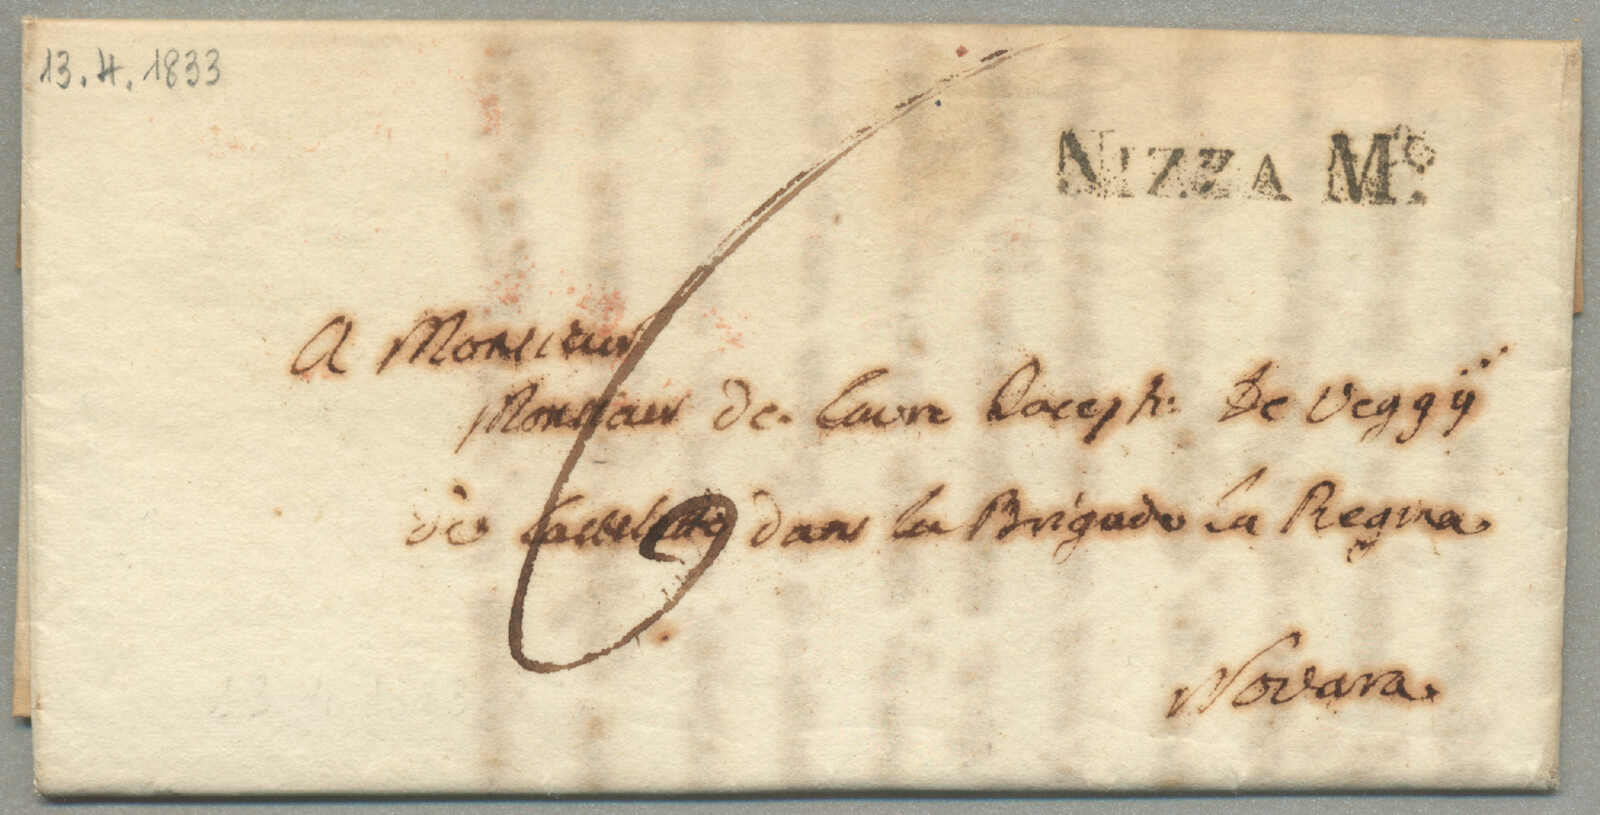 13.4.1833
NIZZA Mª.
6
A Monsieur
Monsieur de Joseph De Veggÿ
de dans la Brigade la Regina
Novara.